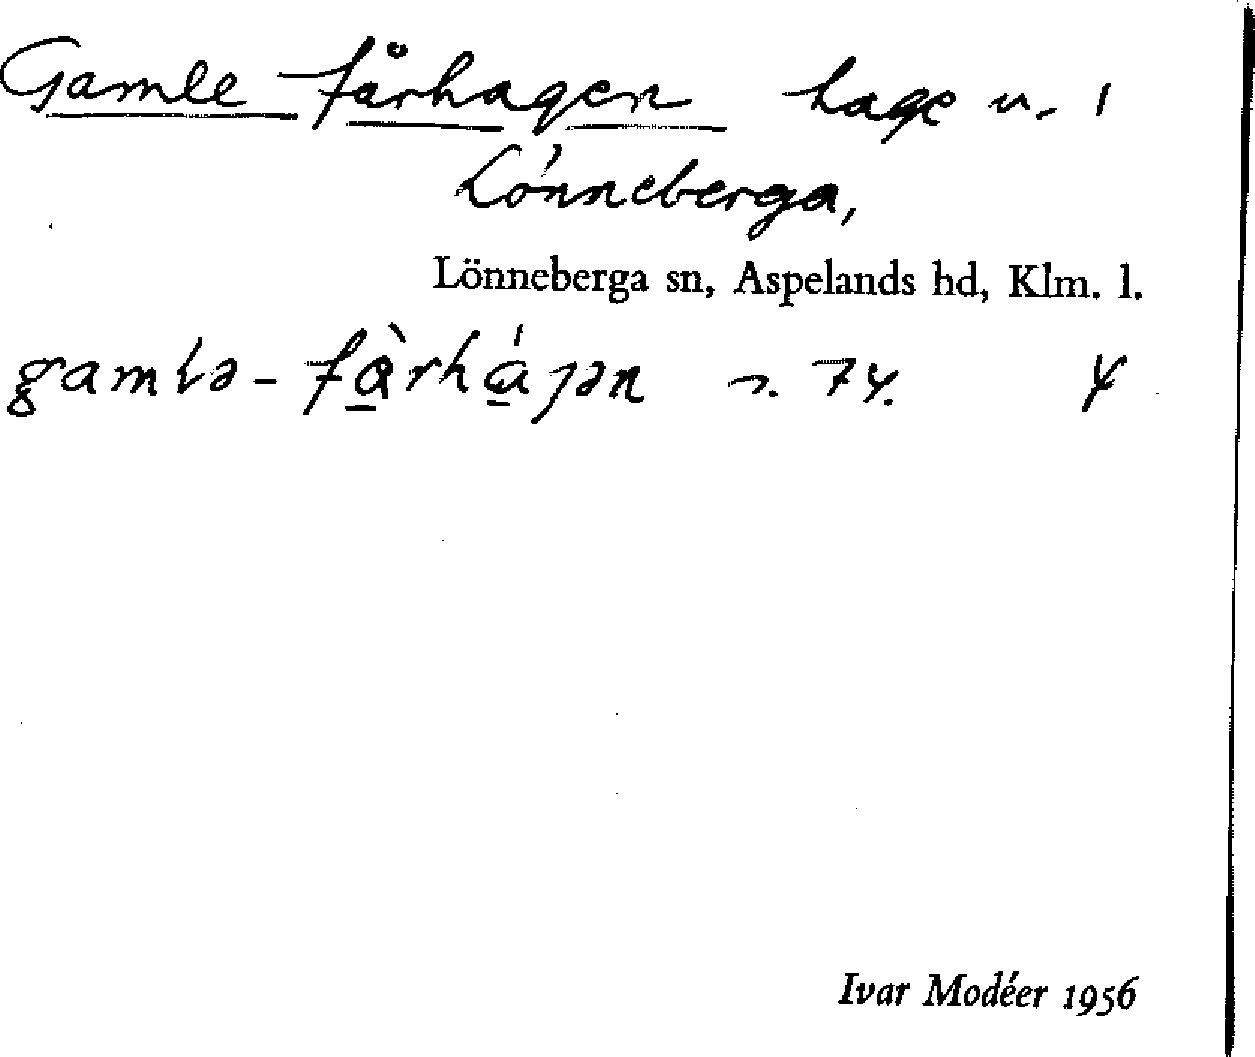 Gamle fårhagen hage u. 1
Lönneberga,
Lönneberga sn, Aspelands hd, Klm. l.
gamlə-fàrhájən s. 74.
Ivar Modéer 1956